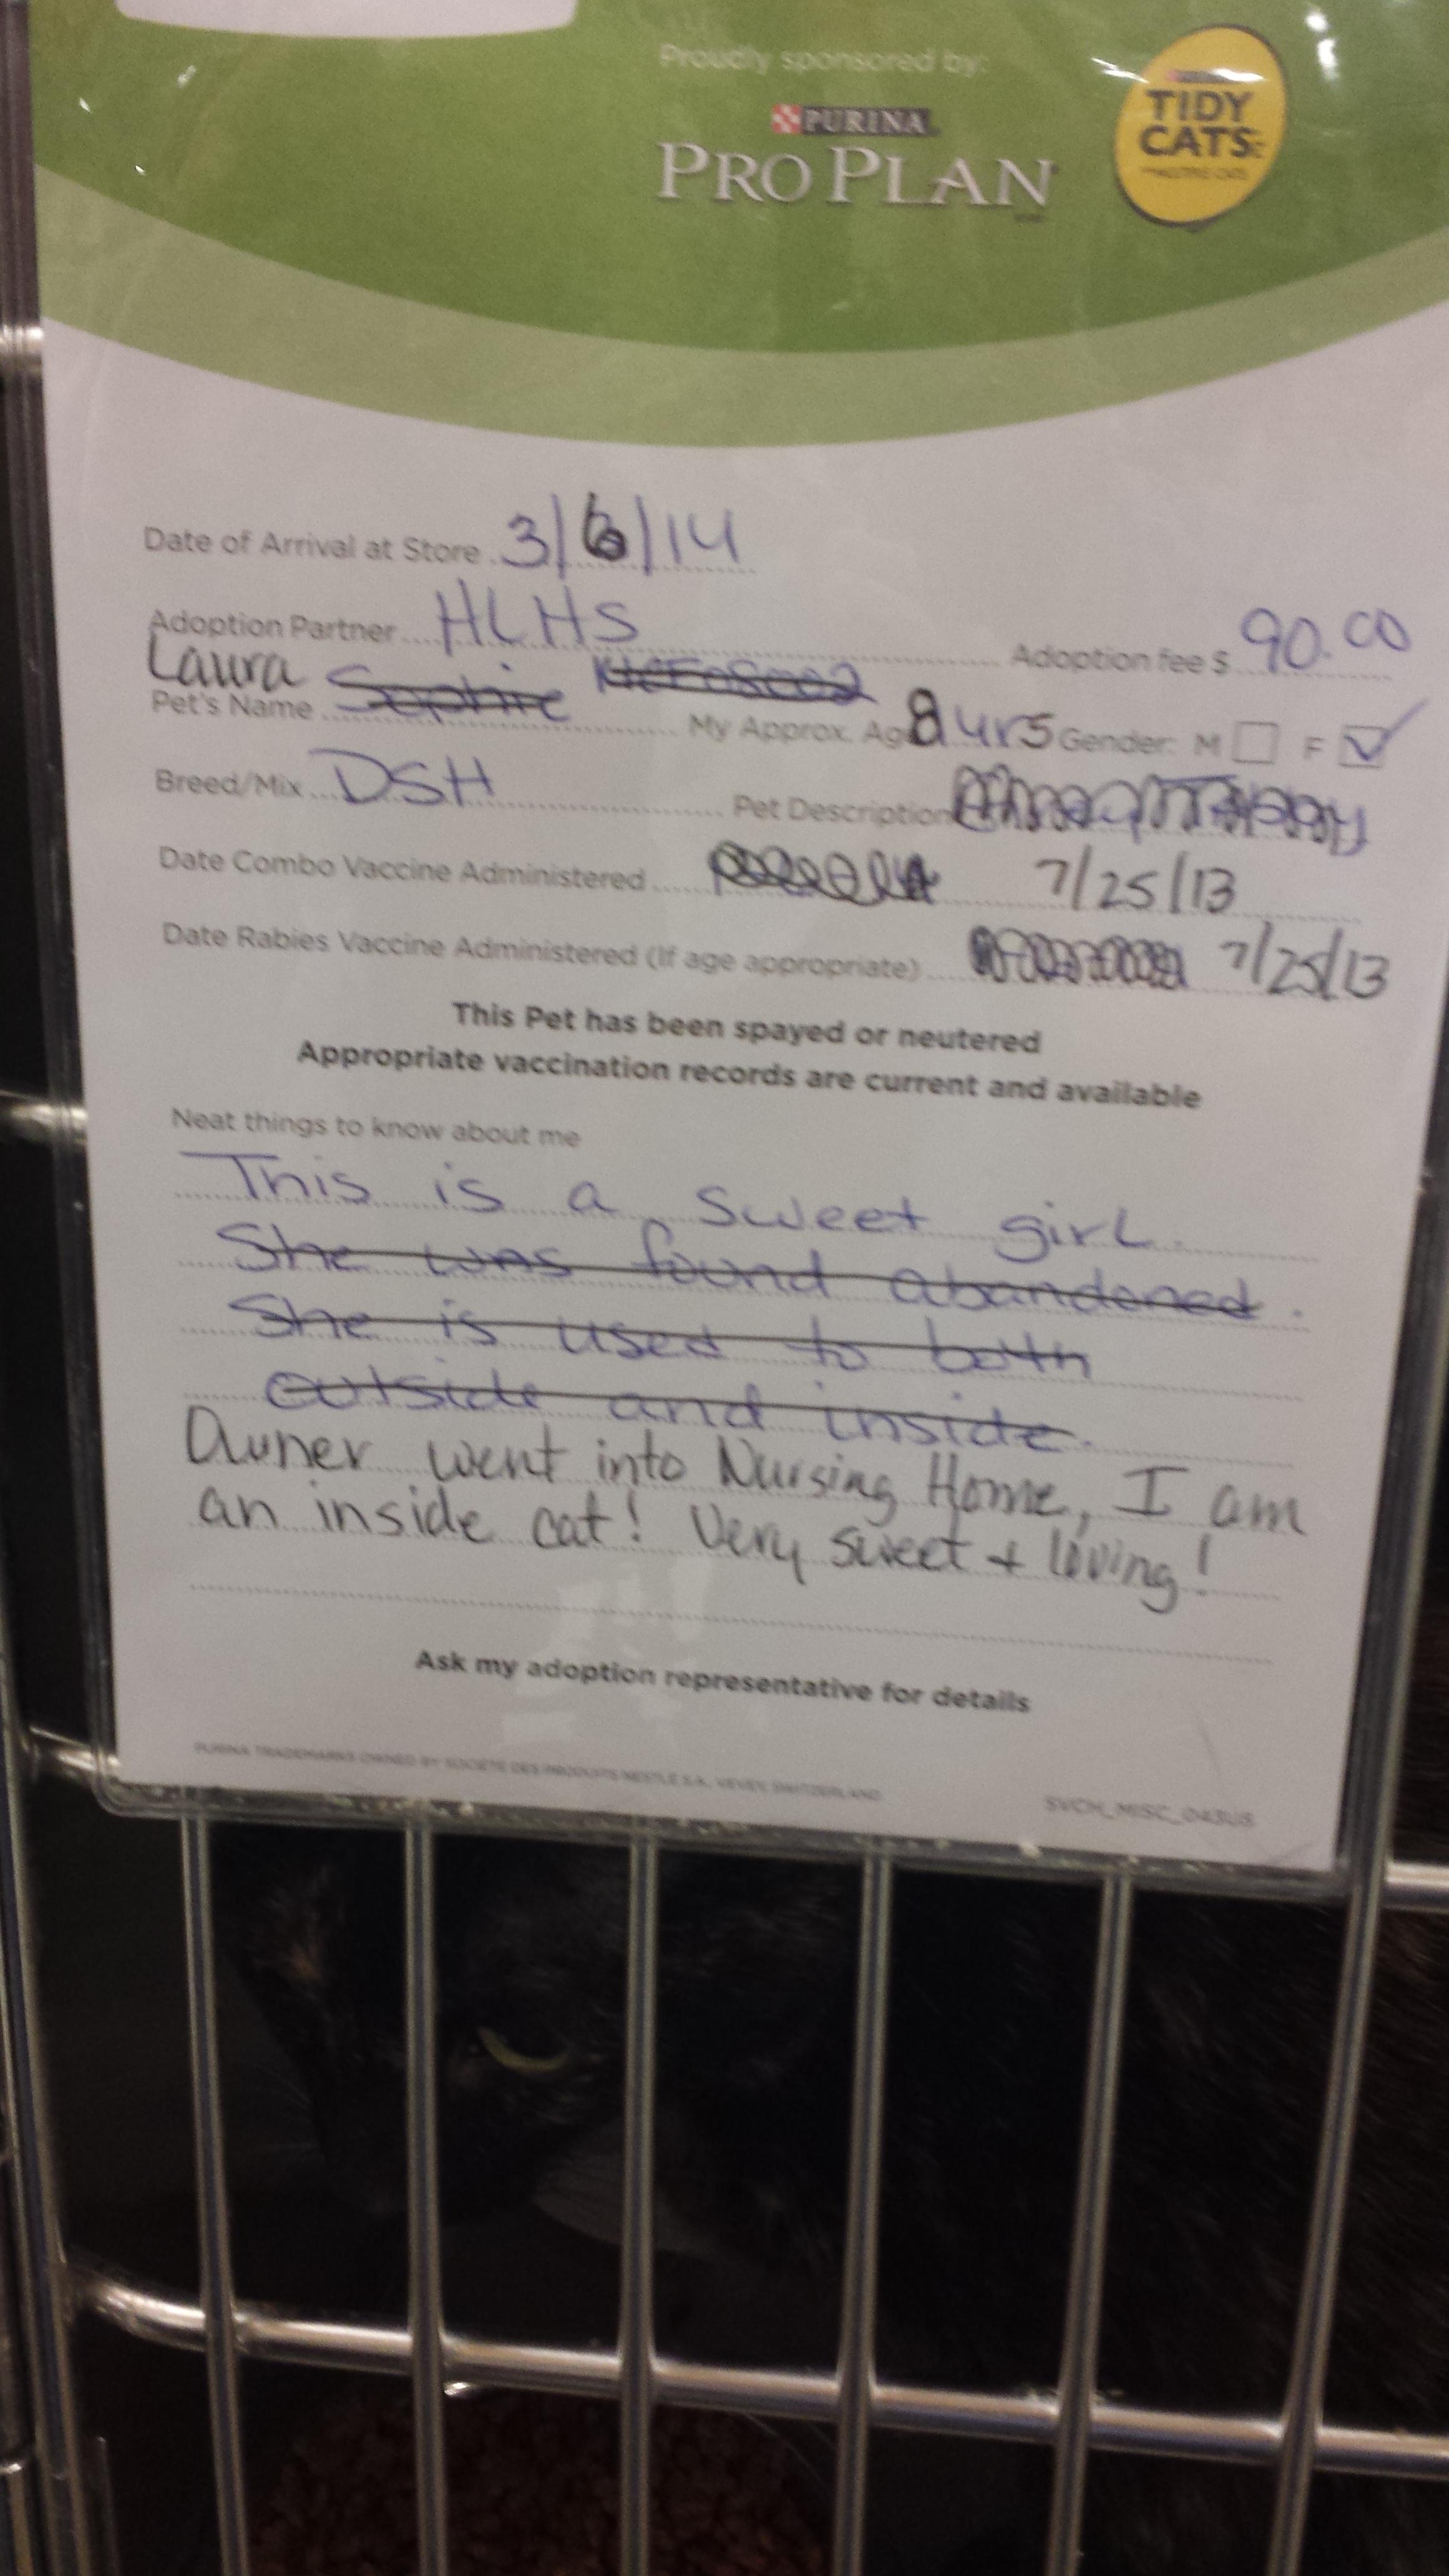 Proudly sponsored by:
PURINA
PRO PLAN
TIDY
CATS
Date of Arrival at Store 3/6/14
Adoption Partner HLHS
Adoption fee $ 90.00
Laura
Pet's Name Sophie
My Approx. Age 8 yrs Gender: M F
Breed/Mix DSH
Pet Description
Date Combo Vaccine Administered 7/25/13
Date Rabies Vaccine Administered (If age appropriate) 7/25/13
This Pet has been spayed or neutered
Appropriate vaccination records are current and available
Neat things to know about me
This is a sweet girl.
She was found abandoned.
She is used to both
outside and inside.
Owner went into Nursing Home, I am
an inside cat! Very sweet + loving!
Ask my adoption representative for details
PURINA TRADEMARKS OWNED BY SOCIÉTÉ DES PRODUITS NESTLÉ S.A., VEVEY, SWITZERLAND
SVCH_MISC_043US